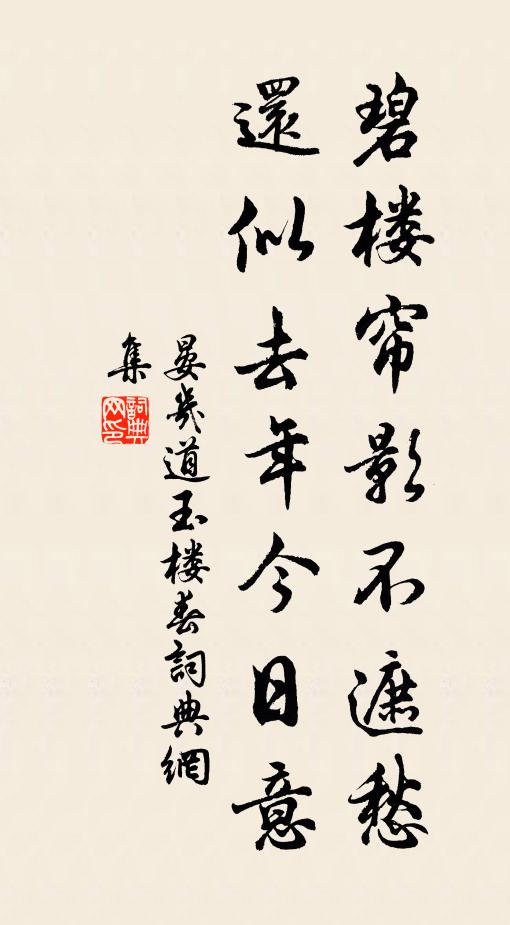 碧楼帘影不遮愁
還似去年今日意
晏幾道玉楼春詞典網
集
詞典
网印